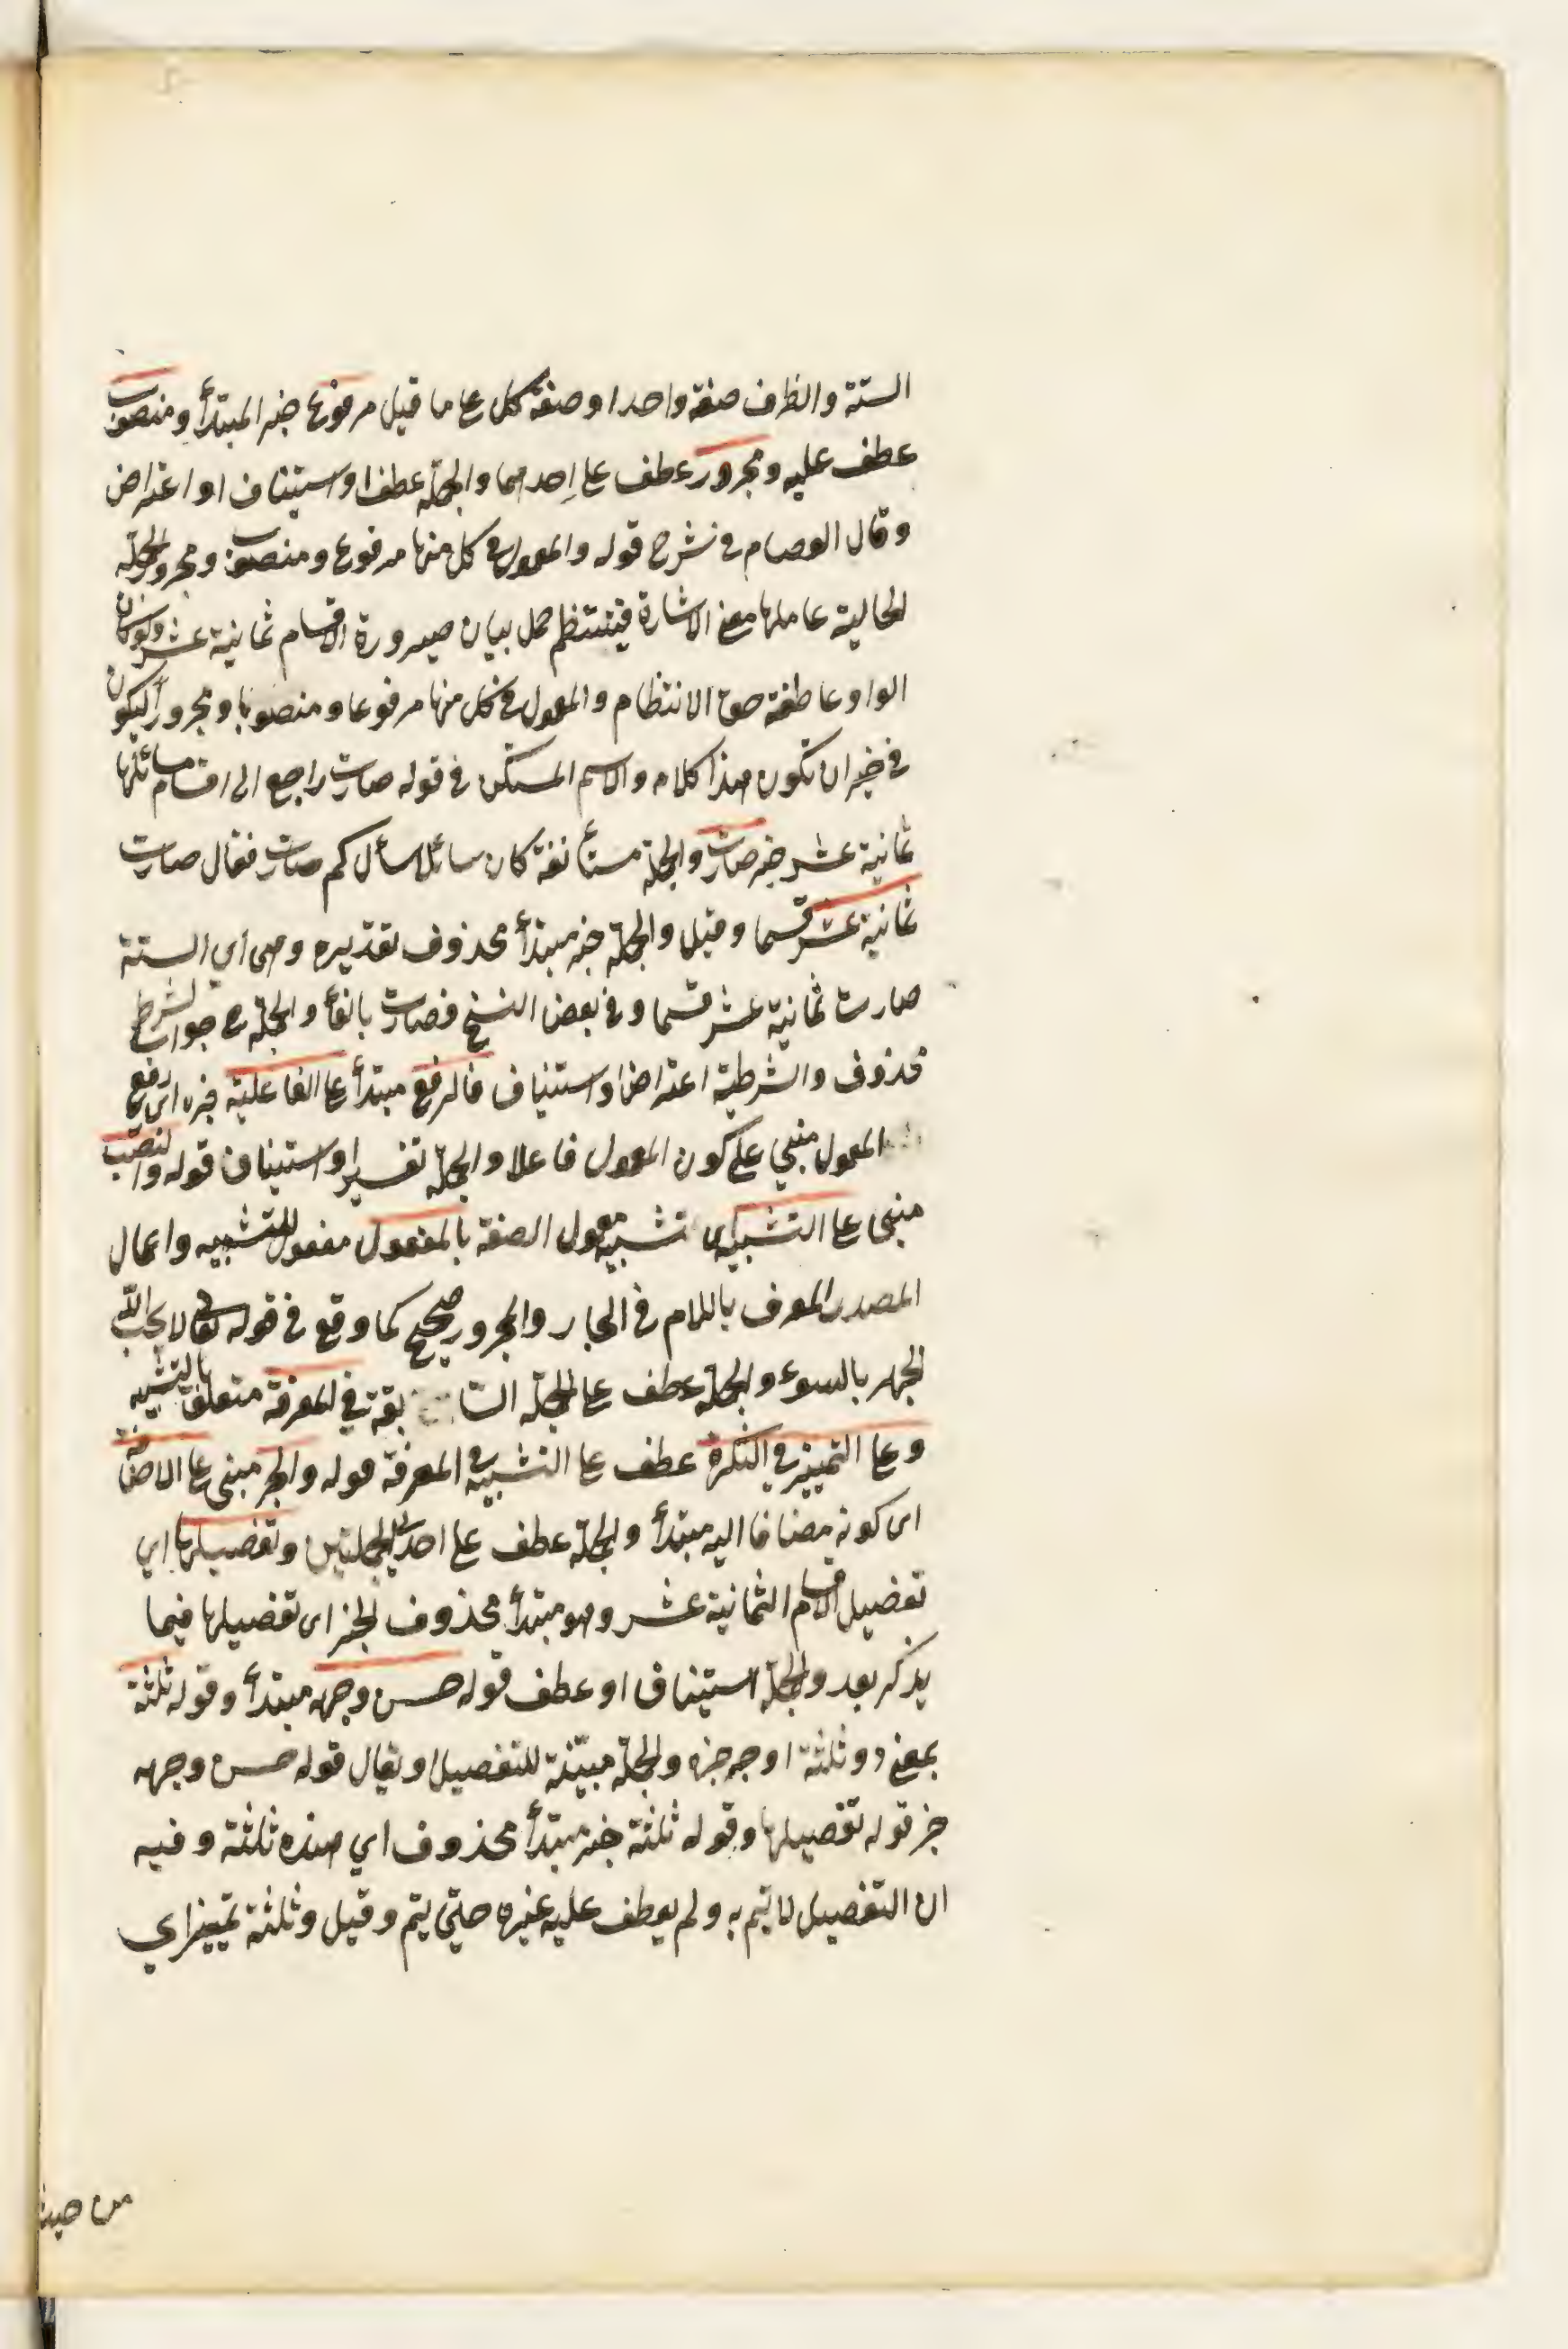 الستة والظرف صفة واحدا وصفة كل على ما قيل مرفوع خبر المبتدأ ومنصوب
عطف عليه ومجرور عطف على احدهما والجملة عطف او استيناف او اعتراض
وقال العصام في شرح قوله والمعمول في كل منها مرفوع ومنصوب ومجرور الجملة
الحالية عاملها معنى الاشارة فينتظم كل بيان صيرورة الاقسام ثمانية عشر ولو كان
الواو عاطفة حق الانتظام والمعمول في كل منها مرفوعا ومنصوبا ومجرورا ليكون
في خبر ان تكون هذا كلامه والاسم المستكن في قوله صارت راجع الى اقسام مسائلها
ثمانية عشر خبر صارت والجملة مستأنفة كان سائلا سأل كم صارت فقال صارت
ثمانية عشر قسما وقيل والجملة خبر مبتدأ محذوف تقديره وهي أي الستة
صارت ثمانية عشر قسما وفي بعض النسخ فصارت بالفأ والجملة ح جواب لشرط
محذوف والشرطية اعتراض او استيناف فالرفع مبتدأ على الفاعلية خبره اى رفع
المعمول مبني على كون المعمول فاعلا والجملة تفسير او استيناف قوله والنصب
مبنى على التشبيه اى تشبيه معمول الصفة بالمفعول مفعول للتشبيه واعمال
المصدر المعرف باللام في الجار والمجرور صحيح كما وقع في قوله تعالى لا يحب الله
الجهر بالسوء والجملة عطف على الجملة السابقة في المعرفة متعلق بالتشبيه
وعلى التمييز في النكرة عطف على التشبيه في المعرفة قوله والجر مبنى على الاضافة
اى كونه مضافا اليه مبتدأ والجملة عطف على احدى الجملتين وتفصيلها اي
تفصيل الاقسام الثمانية عشر وهو مبتدأ محذوف الخبر اى تفصيلها فيما
يذكر بعد والجملة استيناف او عطف قوله حسن وجهه مبتدأ وقوله ثلثة
بمعنى ذو ثلثة اوجه خبره والجملة مبيّنة للتفصيل ويقال قوله حسن وجهه
خبر قوله تفصيلها وقوله ثلثة خبر مبتدأ محذوف اي هذه ثلثة وفيه
ان التفصيل لا يتم به ولم يعطف عليه غيره حتى يتم وقيل وثلثة تمييز اي
من حيث